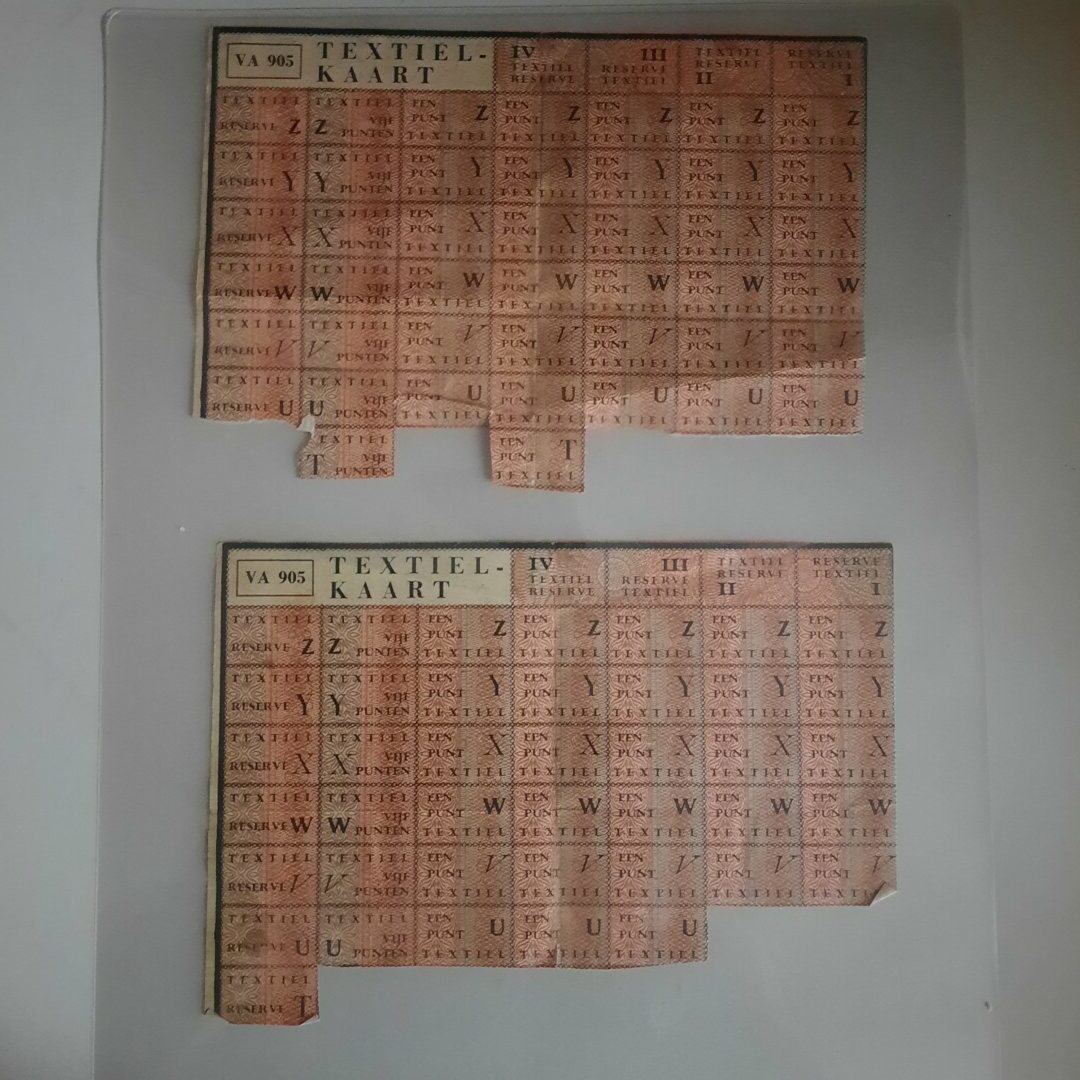 VA 905 TEXTIEL-
KAART
IV TEXTIEL RESERVE
III RESERVE TEXTIEL
TEXTIEL RESERVE II
RESERVE TEXTIEL I
TEXTIEL RESERVE Z TEXTIEL Z VIJF PUNTEN EEN PUNT Z TEXTIEL EEN PUNT Z TEXTIEL EEN PUNT Z TEXTIEL EEN PUNT Z TEXTIEL EEN PUNT Z TEXTIEL
TEXTIEL RESERVE Y TEXTIEL Y VIJF PUNTEN EEN PUNT Y TEXTIEL EEN PUNT Y TEXTIEL EEN PUNT Y TEXTIEL EEN PUNT Y TEXTIEL EEN PUNT Y TEXTIEL
TEXTIEL RESERVE X TEXTIEL X VIJF PUNTEN EEN PUNT X TEXTIEL EEN PUNT X TEXTIEL EEN PUNT X TEXTIEL EEN PUNT X TEXTIEL EEN PUNT X TEXTIEL
TEXTIEL RESERVE W TEXTIEL W VIJF PUNTEN EEN PUNT W TEXTIEL EEN PUNT W TEXTIEL EEN PUNT W TEXTIEL EEN PUNT W TEXTIEL EEN PUNT W TEXTIEL
TEXTIEL RESERVE V TEXTIEL V VIJF PUNTEN EEN PUNT V TEXTIEL EEN PUNT V TEXTIEL EEN PUNT V TEXTIEL EEN PUNT V TEXTIEL EEN PUNT V TEXTIEL
TEXTIEL RESERVE U TEXTIEL U VIJF PUNTEN EEN PUNT U TEXTIEL EEN PUNT U TEXTIEL EEN PUNT U TEXTIEL EEN PUNT U TEXTIEL EEN PUNT U TEXTIEL
TEXTIEL T VIJF PUNTEN EEN PUNT T TEXTIEL
VA 905 TEXTIEL-
KAART
IV TEXTIEL RESERVE
III RESERVE TEXTIEL
TEXTIEL RESERVE II
RESERVE TEXTIEL I
TEXTIEL RESERVE Z TEXTIEL Z VIJF PUNTEN EEN PUNT Z TEXTIEL EEN PUNT Z TEXTIEL EEN PUNT Z TEXTIEL EEN PUNT Z TEXTIEL EEN PUNT Z TEXTIEL
TEXTIEL RESERVE Y TEXTIEL Y VIJF PUNTEN EEN PUNT Y TEXTIEL EEN PUNT Y TEXTIEL EEN PUNT Y TEXTIEL EEN PUNT Y TEXTIEL EEN PUNT Y TEXTIEL
TEXTIEL RESERVE X TEXTIEL X VIJF PUNTEN EEN PUNT X TEXTIEL EEN PUNT X TEXTIEL EEN PUNT X TEXTIEL EEN PUNT X TEXTIEL EEN PUNT X TEXTIEL
TEXTIEL RESERVE W TEXTIEL W VIJF PUNTEN EEN PUNT W TEXTIEL EEN PUNT W TEXTIEL EEN PUNT W TEXTIEL EEN PUNT W TEXTIEL EEN PUNT W TEXTIEL
TEXTIEL RESERVE V TEXTIEL V VIJF PUNTEN EEN PUNT V TEXTIEL EEN PUNT V TEXTIEL EEN PUNT V TEXTIEL EEN PUNT V TEXTIEL EEN PUNT V TEXTIEL
TEXTIEL RESERVE U TEXTIEL U VIJF PUNTEN EEN PUNT U TEXTIEL EEN PUNT U TEXTIEL EEN PUNT U TEXTIEL
TEXTIEL RESERVE T